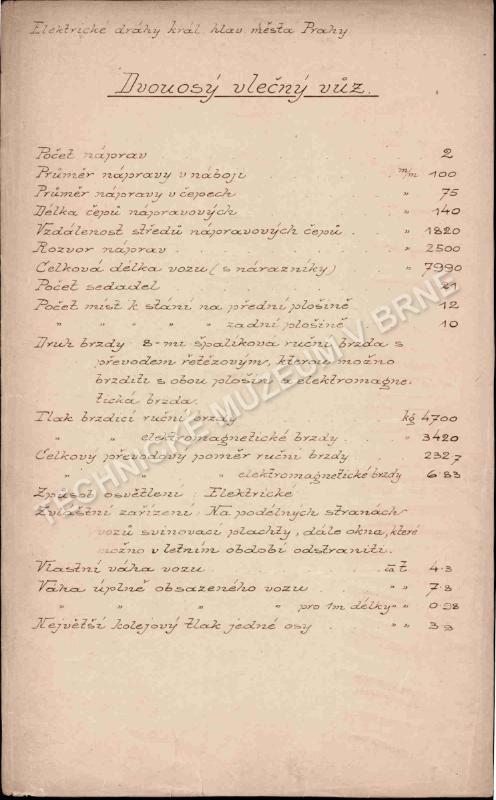 Elektrické dráhy král. hlav. města Prahy
Dvouosý vlečný vůz.
Počet náprav 2
Průměr nápravy v náboji m/m 100
Průměr nápravy v čepech " 75
Délka čepů nápravových " 140
Vzdálenost středů nápravových čepů . " 1820
Rozvor náprav . " 2500
Celková délka vozu (s nárazníky) " 7990
Počet sedadel . 21
Počet míst k stání na přední plošině 12
" " " " " zadní plošině . 10
Druh brzdy 8-mi špalíková ruční brzda s
převodem řetězovým, kterou možno
brzditi s obou plošin a elektromagne-
tická brzda.
Tlak brzdící ruční brzdy kg 4700
" " elektromagnetické brzdy . " 3420
Celkový převodový poměr ruční brzdy 232,7
" " " elektromagnetické brzdy 6.83
Způsob osvětlení : Elektrické
Zvláštní zařízení : Na podélných stranách
vozů svinovací plachty, dále okna, které
možno v letním období odstraniti.
Vlastní váha vozu . ca t. 4.3
Váha úplně obsazeného vozu " " 7.8
" " " " pro 1m délky " " 0.98
Největší kolejový tlak jedné osy . " " 3.9
TECHNICKÉ MUZEUM V BRNĚ